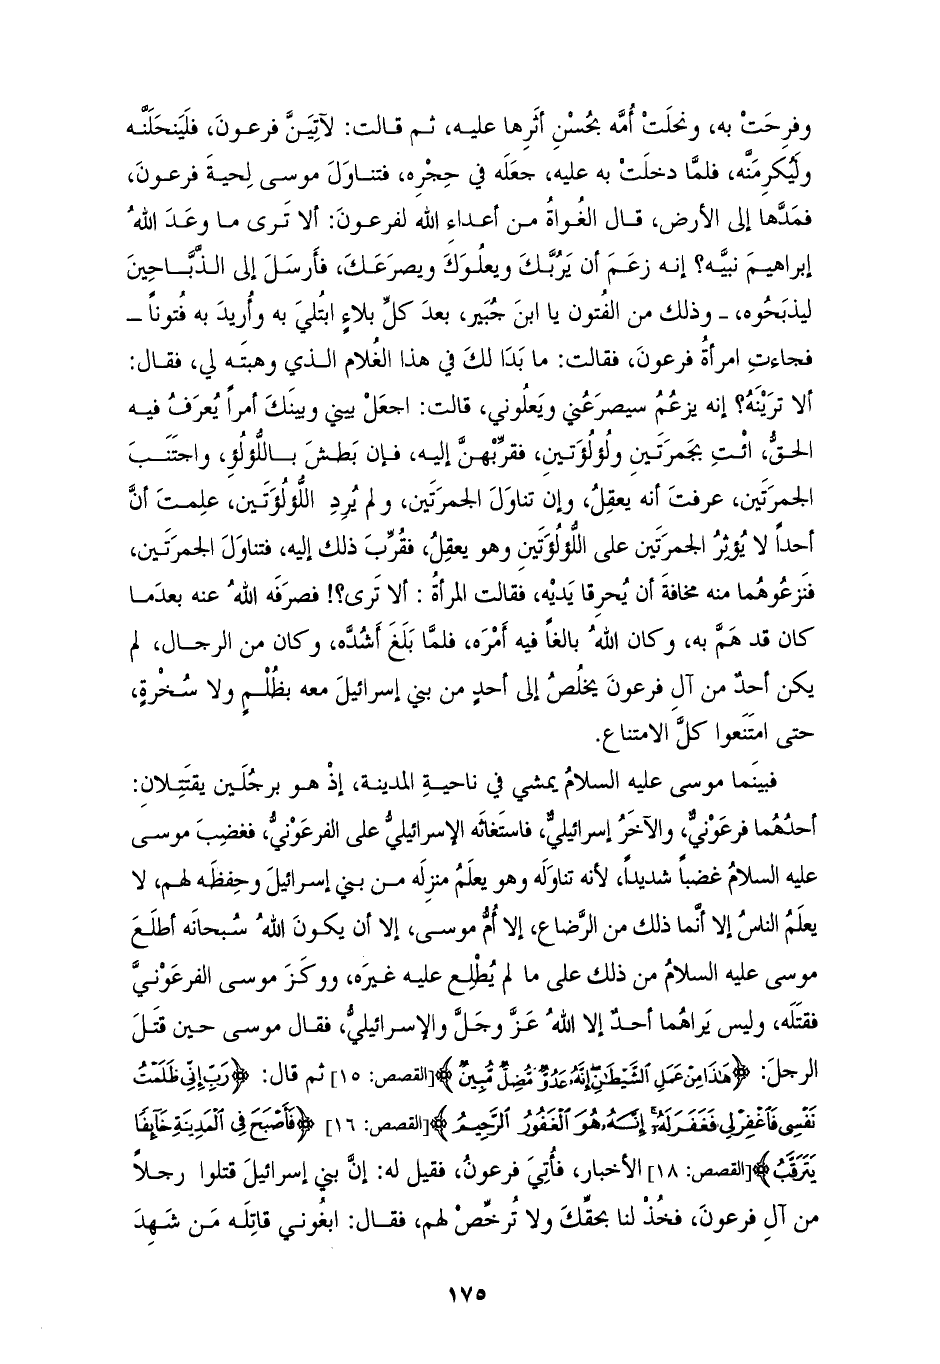 وفرِحَتْ به، ونحلَتْ أُمَّه بحُسْنِ أثَرِها عليه، ثم قالت: لآتِيَنَّ فرعونَ، فلَيَنحَلَنَّه
ولَيُكرِمَنَّه، فلمَّا دخلَتْ به عليه، جعَلَه في حِجْرِه، فتناوَلَ موسى لِحيةَ فرعونَ،
فمَدَّها إلى الأرض، قال الغُواةُ من أعداءِ الله لفرعونَ: ألا تَرى ما وعَدَ اللهُ
إبراهيمَ نبيَّه؟ إنه زعَمَ أن يَرُبَّكَ ويعلُوَكَ ويصرَعَكَ، فأَرسَلَ إلى الذَّبَّاحِينَ
ليذبَحُوه، ـ وذلك من الفُتون يا ابنَ جُبَير، بعدَ كلِّ بلاءٍ ابتُليَ به وأُريدَ به فُتوناً ـ
فجاءتِ امرأةُ فرعونَ، فقالت: ما بَدَا لكَ في هذا الغُلام الذي وهبتَه لي، فقال:
ألا ترَيْنَهُ؟ إنه يزعُمُ سيصرَعُني ويَعلُوني، قالت: اجعَلْ بيني وبينَكَ أمراً يُعرَفُ فيه
الحقُّ، ائْتِ بجَمرتَينِ ولُؤلُؤَتينِ، فقرِّبْهنَّ إليه، فإن بَطشَ باللُّؤلُؤِ، واجتَنَبَ
الجمرتَين، عرفتَ أنه يعقِلُ، وإن تناوَلَ الجمرتَين، ولم يُرِدِ اللُّؤلُؤَتَين، علِمتَ أنَّ
أحداً لا يُؤثِرُ الجمرتَينِ على اللُّؤلُؤَتَينِ وهو يعقِلُ، فقُرِّبَ ذلك إليه، فتناوَلَ الجمرتَين،
فنَزعُوهُما منه مخافةَ أن يُحرِقا يَديْه، فقالت المرأةُ: ألا تَرى؟! فصرَفَه اللهُ عنه بعدَما
كان قد هَمَّ به، وكان اللهُ بالغاً فيه أَمْرَه، فلمَّا بَلَغَ أَشُدَّه، وكان من الرجال، لم
يكن أحدٌ من آلِ فرعونَ يخلُصُ إلى أحدٍ من بني إسرائيلَ معه بظُلْمٍ ولا سُخْرةٍ،
حتى امتَنَعوا كلَّ الامتناع.
فبينَما موسى عليه السلامُ يمشي في ناحيةِ المدينة، إذْ هو برجُلَين يقتَتِلان:
أحدُهُما فرعَوْنيٌّ، والآخَرُ إسرائيليٌّ، فاستَغاثَه الإسرائيليُّ على الفرعَوْنيِّ، فغضِبَ موسى
عليه السلامُ غضباً شديداً، لأنه تناوَلَه وهو يعلَمُ منزِلَه من بني إسرائيلَ وحِفظَه لهم، لا
يعلَمُ الناسُ إلا أنَّما ذلك من الرَّضاع، إلا أُمُّ موسى، إلا أن يكونَ اللهُ سُبحانَه أطلَعَ
موسى عليه السلامُ من ذلك على ما لم يُطْلِع عليه غيرَه، ووكَزَ موسى الفرعَوْنيَّ
فقتَلَه، وليس يَراهُما أحدٌ إلا اللهُ عَزَّ وجَلَّ والإسرائيليُّ، فقال موسى حين قتَلَ
الرجلَ: ﴿هَٰذَا مِنْ عَمَلِ ٱلشَّيْطَٰنِ إِنَّهُۥ عَدُوٌّ مُّضِلٌّ مُّبِينٌ﴾[القصص: ١٥] ثم قال: ﴿رَبِّ إِنِّي ظَلَمْتُ
نَفْسِي فَٱغْفِرْ لِي فَغَفَرَ لَهُۥٓ إِنَّهُۥ هُوَ ٱلْغَفُورُ ٱلرَّحِيمُ﴾[القصص: ١٦] ﴿فَأَصْبَحَ فِي ٱلْمَدِينَةِ خَآئِفًا
يَتَرَقَّبُ﴾[القصص: ١٨] الأخبار، فأُتِيَ فرعونُ، فقيل له: إنَّ بني إسرائيلَ قتلوا رجلاً
من آلِ فرعونَ، فخُذْ لنا بحقِّكَ ولا تُرخِّصْ لهم، فقال: ابغُوني قاتِلَه مَن شَهِدَ
١٧٥